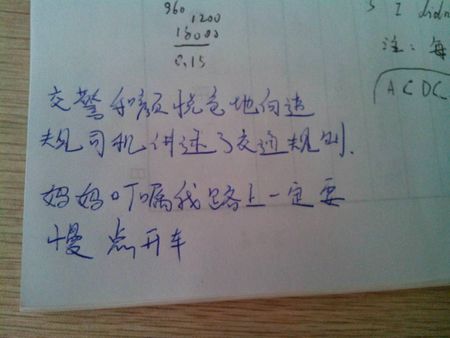 960
1200
18000
0.15
5 I didn
注：每
ACDC
交警和颜悦色地向违
规司机讲述了交通规则.
妈妈叮嘱我路上一定要
慢点开车